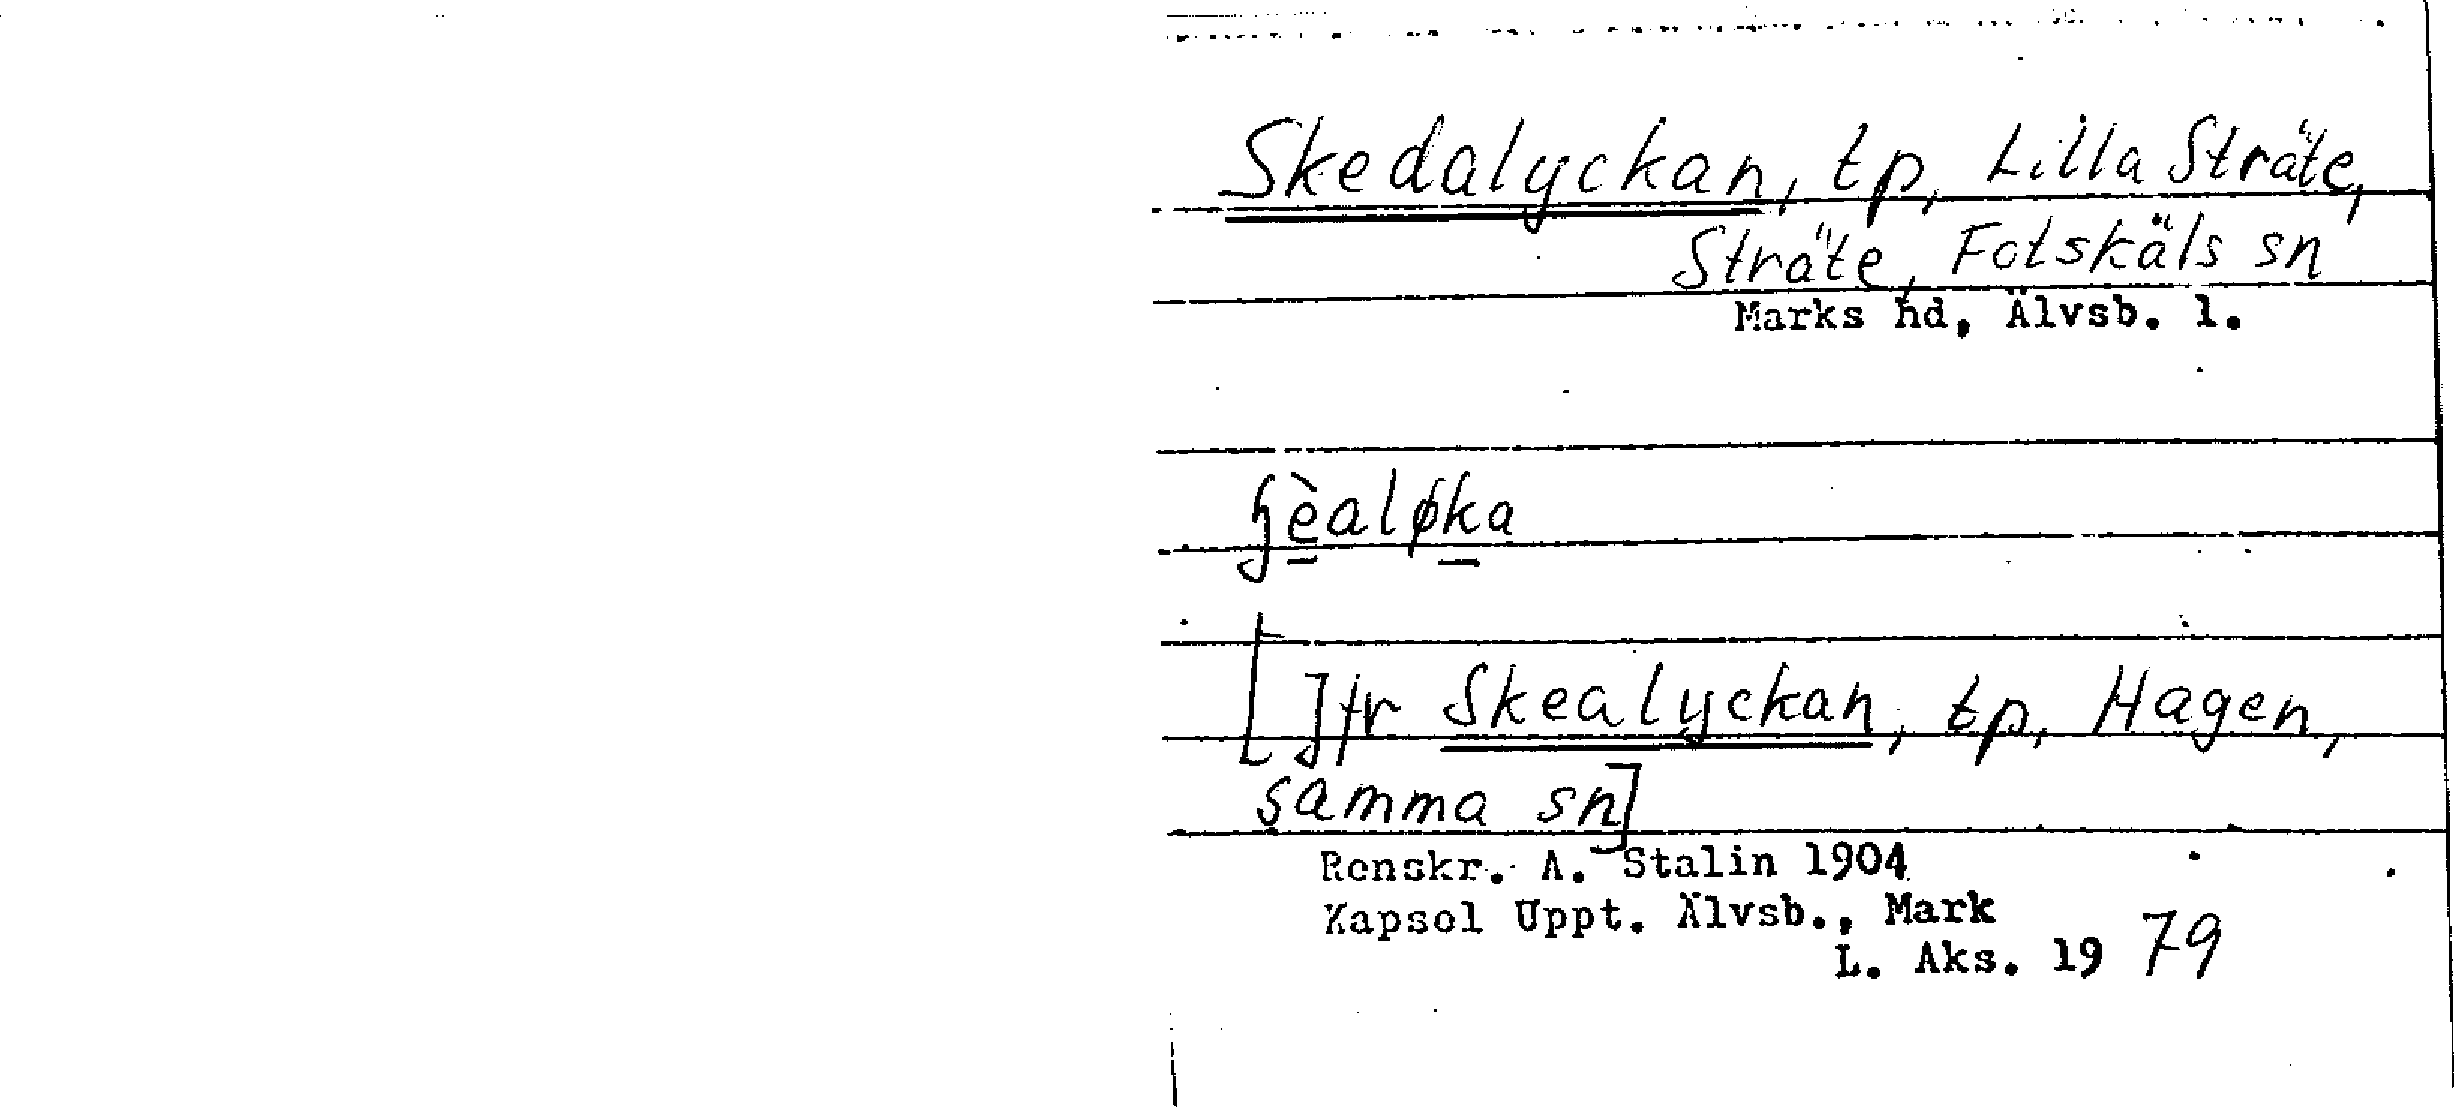 Skedalyckan, tp, Lilla Sträte,
Sträte, Fotskäls sn
Marks hd, Älvsb. l.
ʃèaløka
[Jfr Skealyckan, tp, Hagen,
samma sn]
Renskr. A. Stalin 1904
Kapsel Uppt. Älvsb., Mark
L. Aks. 1979